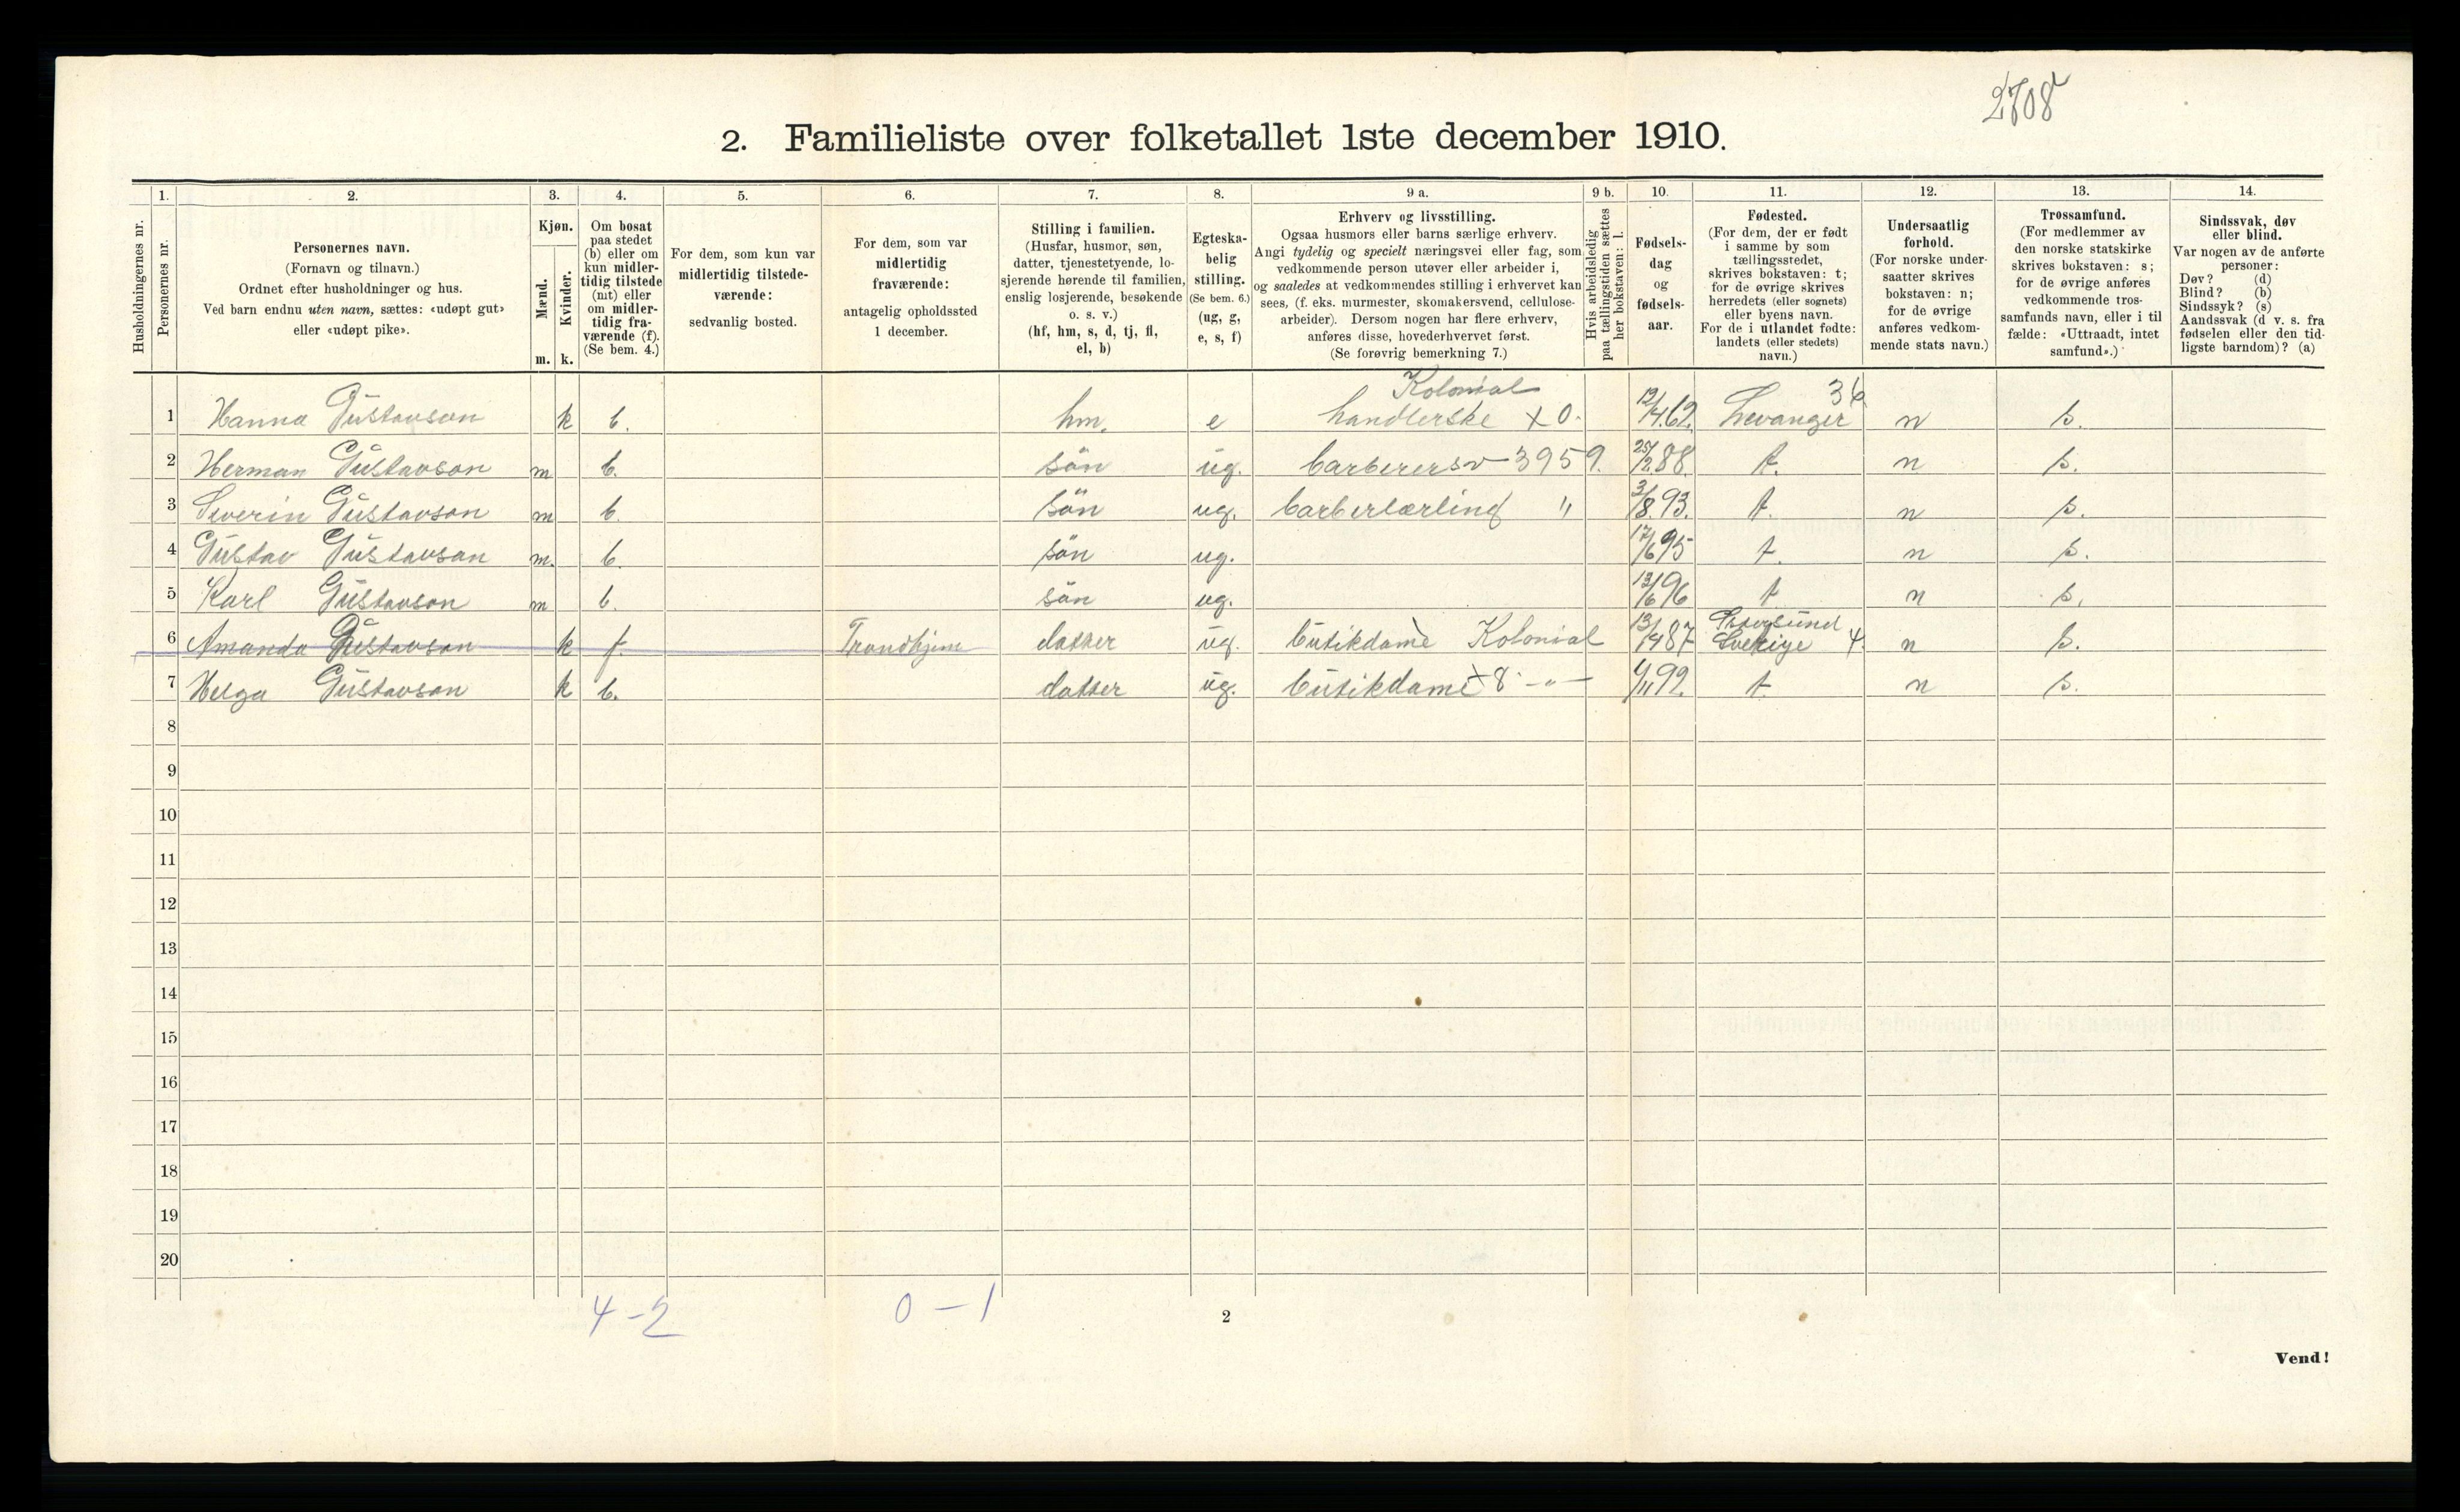 2708
2. Familieliste over folketallet 1ste december 1910.
1. 2. 3. 4. 5. 6. 7. 8. 9 a. 9 b. 10. 11. 12. 13. 14.
Husholdningernes nr.
Personernes nr.
Personernes navn.
(Fornavn og tilnavn.)
Ordnet efter husholdninger og hus.
Ved barn endnu uten navn, sættes: «udøpt gut»
eller «udøpt pike».
Kjøn.
Mænd.
Kvinder.
m. k.
Om bosat
paa stedet
(b) eller om
kun midler-
tidig tilstede
(mt) eller
om midler-
tidig fra-
værende (f).
(Se bem. 4.)
For dem, som kun var
midlertidig tilstede-
værende:
sedvanlig bosted.
For dem, som var
midlertidig
fraværende:
antagelig opholdssted
1 december.
Stilling i familien.
(Husfar, husmor, søn,
datter, tjenestetyende, lo-
sjerende hørende til familien,
enslig losjerende, besøkende
o. s. v.)
(hf, hm, s, d, tj, fl,
el, b)
Egteska-
belig
stilling.
(Se bem. 6.)
(ug, g,
e, s, f)
Erhverv og livsstilling.
Ogsaa husmors eller barns særlige erhverv.
Angi tydelig og specielt næringsvei eller fag, som
vedkommende person utøver eller arbeider i,
og saaledes at vedkommendes stilling i erhvervet kan
sees, (f. eks. murmester, skomakersvend, cellulose-
arbeider). Dersom nogen har flere erhverv,
anføres disse, hovederhvervet først.
(Se forøvrig bemerkning 7.)
Hvis arbeidsledig
paa tællingstiden sættes
her bokstaven: l.
Fødsels-
dag
og
fødsels-
aar.
Fødested.
(For dem, der er født
i samme by som
tællingsstedet,
skrives bokstaven: t;
for de øvrige skrives
herredets (eller sognets)
eller byens navn.
For de i utlandet fødte:
landets (eller stedets)
navn.)
Undersaatlig
forhold.
(For norske under-
saatter skrives
bokstaven: n;
for de øvrige
anføres vedkom-
mende stats navn.)
Trossamfund.
(For medlemmer av
den norske statskirke
skrives bokstaven: s;
for de øvrige anføres
vedkommende tros-
samfunds navn, eller i til-
fælde: «Uttraadt, intet
samfund».)
Sindssvak, døv
eller blind.
Var nogen av de anførte
personer:
Døv? (d)
Blind? (b)
Sindssyk? (s)
Aandssvak (d v. s. fra
fødselen eller den tid-
ligste barndom)? (a)
Kolonial 36
1 Hanna Gustavson k b. hm. e handlerske x 0. 12/4 62. Levanger n s.
2 Herman Gustavson m b. sön ug. barberersv 3959. 25/2 88. t. n s.
3 Severin Gustavson m b. sön ug. barberlærling " 3/8. 93. t. n s.
4 Gustav Gustavson m. b. sön ug. 17/6 95 t. n s.
5 Karl Gustavson m b. sön ug. 13/6 96 t n s.
Östersund
6 Amanda Gustavson k f. Trondhjem datter ug. butikdame Kolonial 13/4 87 Sverige 4. n s.
7 Helga Gustavson k b. datter ug. butikdame x8 -"- 4/11 92. t. n s.
8
9
10
11
12
13
14
15
16
17
18
19
20
4 - 2 0 - 1
2
Vend!